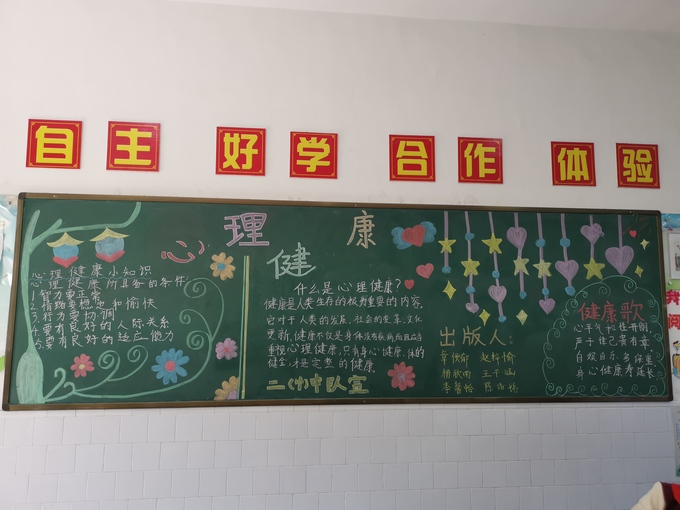 自主 好学 合作 体验
心理健康
心理健康小知识
心理健康所具备的条件
1.智力要正常
2.情绪要稳定和愉快
3.行为要协调
4.要有良好的人际关系
5.要有良好的适应能力
什么是心理健康?
健康是人类生存的极为重要的内容,
它对于人类的发展,社会的变革,文化
更新,
重视心理健康,只有身心健康、体的
健全,才是完整的健康
二(1)中队宣
出版人:
健康歌
心平气和性开朗
严于律己贵有章
身心健康寿延长